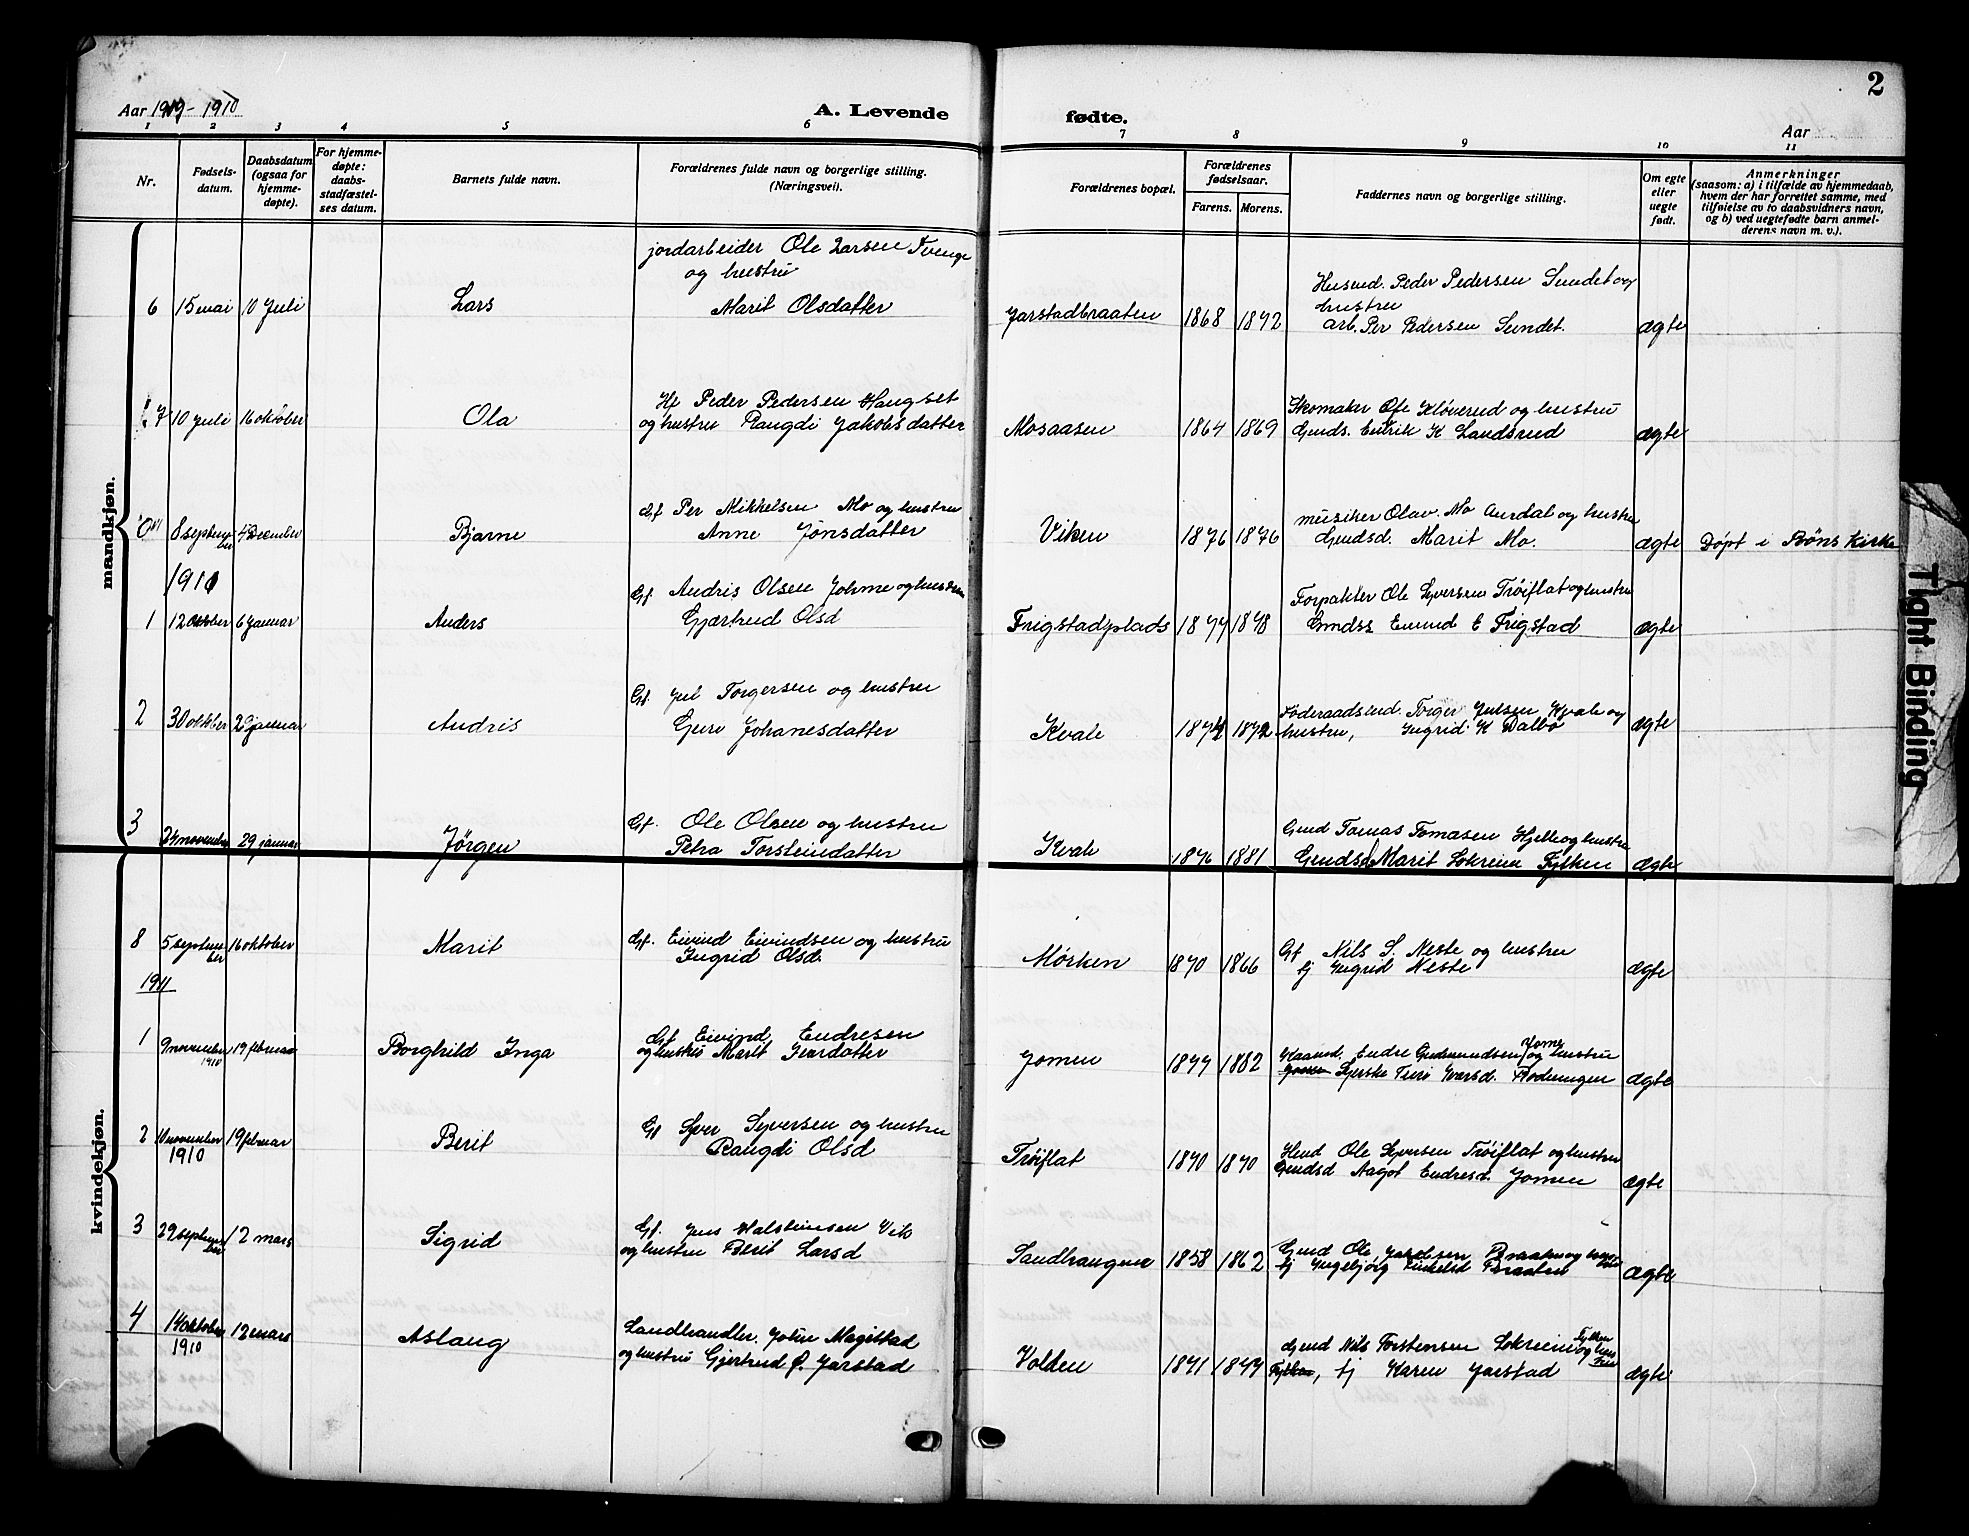 2
Aar 1909 - 1910
A. Levende
fødte.
Aar
1 2 3 4 5 6 7 8 9 10 11
Nr.
Fødsels-
datum.
Daabsdatum
(ogsaa for
hjemme-
døpte).
For hjemme-
døpte:
daabs-
stadfæstel-
ses datum.
Barnets fulde navn.
Forældrenes fulde navn og borgerlige stilling.
(Næringsvei).
Forældrenes bopæl.
Forældrenes
fødselsaar.
Farens. Morens.
Faddernes navn og borgerlige stilling.
Om egte
eller
uegte
født.
Anmerkninger
(saasom: a) i tilfælde av hjemmedaab,
hvem der har forrettet samme, med
tilføielse av to daabsvidners navn,
og b) ved uegtefødte barn anmel-
derens navn m. v.).
mandkjøn.
6 15 mai 10 Juli Lars
jordarbeider Ole Larsen Tvenge
og hustru
Marit Olsdatter
Jarstadbraaten 1868 1872
Husmd. Peder Pedersen Sundet og
hustru
arb. Per Pedersen Sundet.
ægte
7 10 Juli 16 oktober Ola
Hf Peder Pedersen Haugset
og hustru Rangdi Jakobsdatter
Mosaasen 1864 1869
Skomaker Ole Kløverud og hustru
Gmds. Endrik K Landsrud
ægte
8 september 4 December Bjarne
Gf Per Mikkelsen Mo og hustru
Anne Jonsdatter
Viken 1876 1876
musiker Olav Mo Aurdal og hustru
Gmdsd. Marit Mo.
ægte Døpt i Røns Kirke
1911
1 12 oktober 6 januar Anders
Gf. Andris Olsen Johme og hustru
Gjertrud Olsd
Frigstadplads 1877 1878
Forpakter Ole Syversen Trøiflat og hustru
Gmdss Emund E Frigstad
ægte
2 30 oktber 29 januar Andris
Gf. Jul Torgersen og hustru
Guri Johanesdatter
Kvale 1874 1872
Føderaadsmd. Torger Julsen Kvale og
hustru, Ingrid K Dalbo
ægte
3 24 november 29 januar Jörgen
Gf. Ole Olsen og hustru
Petra Torsteindatter
Kvale 1876 1881
Gmd Tomas Tomasen Hjelle og hustru
Gmdsd Marit Lokreim Fylken
ægte
kvindekjøn.
8 5 september 16 oktober Marit
Gf. Eivind Eivindsen og hustru
Ingrid Olsd.
Mörken 1870 1866
Gf Nils S. Neste og hustru
tj Ingrid Neste
ægte
1911
1 9 november 1910 19 februar Borghild Inga
Gf Eivind Endresen
og hustru Marit Iverdatter
Jomen 1877 1882
Kaarmd. Endre Gudmundsen Jome og hustru
Jomen Syerske Turi Iversd. Rodningen
ægte
2 november 1910 19 februar Berit
Gf Syver Syversen og hustru
Rangdi Olsd
Trøiflat 1870 1870
Hmd Ole Syversen Trøiflat og hustru
Gmdsd Aagot Endresd. Jomen
ægte
3 29 september 12 mars Sigrid
Gf. Jens Halsteinsen Vik
og hustru Berit Larsd
Sandhaugene 1858 1862
Gmd Ole Braaten og hustru
tj Ingebjörg Braaten
ægte
4 14 oktober 1910 12 mars Aslaug
Landhandler John Magistad
og hustru Gjertrud O. Jarstad
Volden 1871 1877
Gmd Nils Torstensen Lokreim Fylken og hus
Fylken, tj Karen Jarstad
ægte
Tight Binding